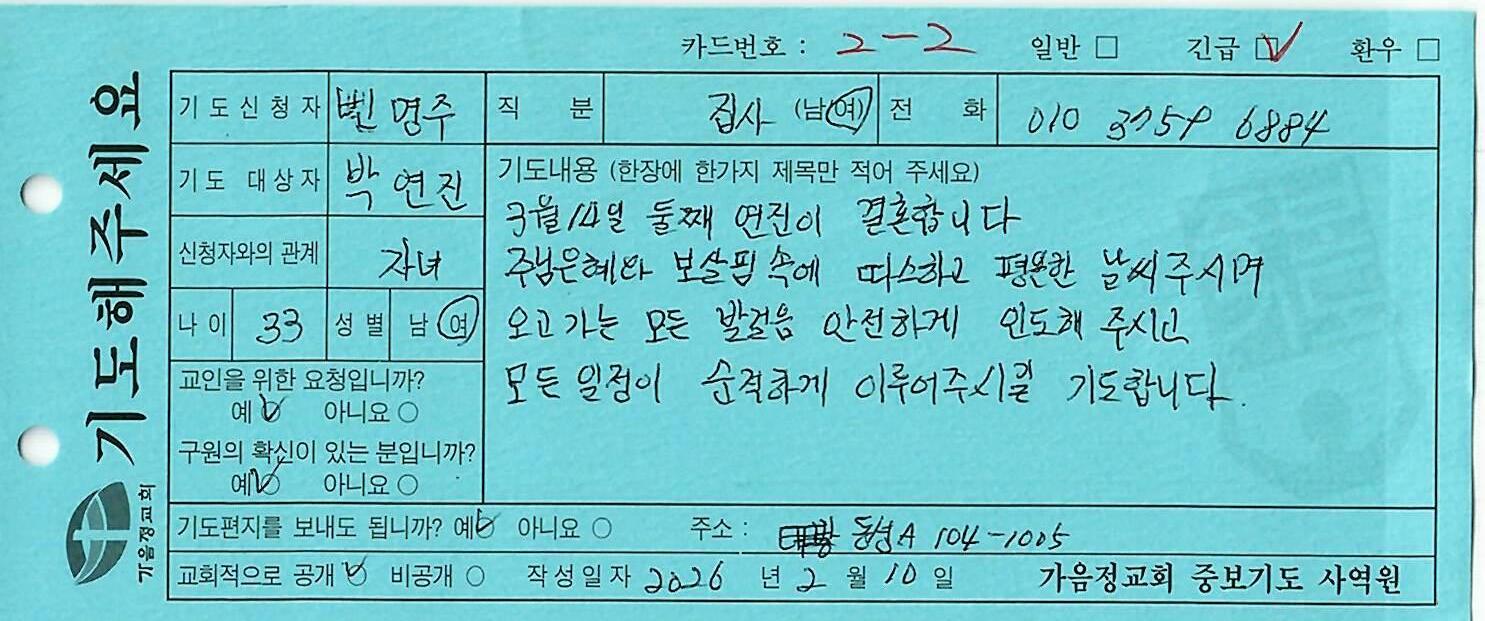 카드번호 : 2-2 일반 □ 긴급 ☑ 환우 □
기도해주세요
기도신청자 빈명주 직 분 집사 (남/여) 전 화 010 3759 6884
기도 대상자 박연진
신청자와의 관계 자녀
나이 33 성별 남 여
교인을 위한 요청입니까?
예 ☑ 아니요 ○
구원의 확신이 있는 분입니까?
예 ☑ 아니요 ○
기도내용 (한장에 한가지 제목만 적어 주세요)
3월 14일 둘째 연진이 결혼합니다
주님은혜와 보살핌 속에 따스하고 평온한 날씨주시며
오고가는 모든 발걸음 안전하게 인도해 주시고
모든 일정이 순적하게 이루어주시길 기도합니다.
기도편지를 보내도 됩니까? 예 ☑ 아니요 ○ 주소 : 동성A 104-1005
교회적으로 공개 ☑ 비공개 ○ 작성일자 2026 년 2 월 10 일 가음정교회 중보기도 사역원
가음정교회